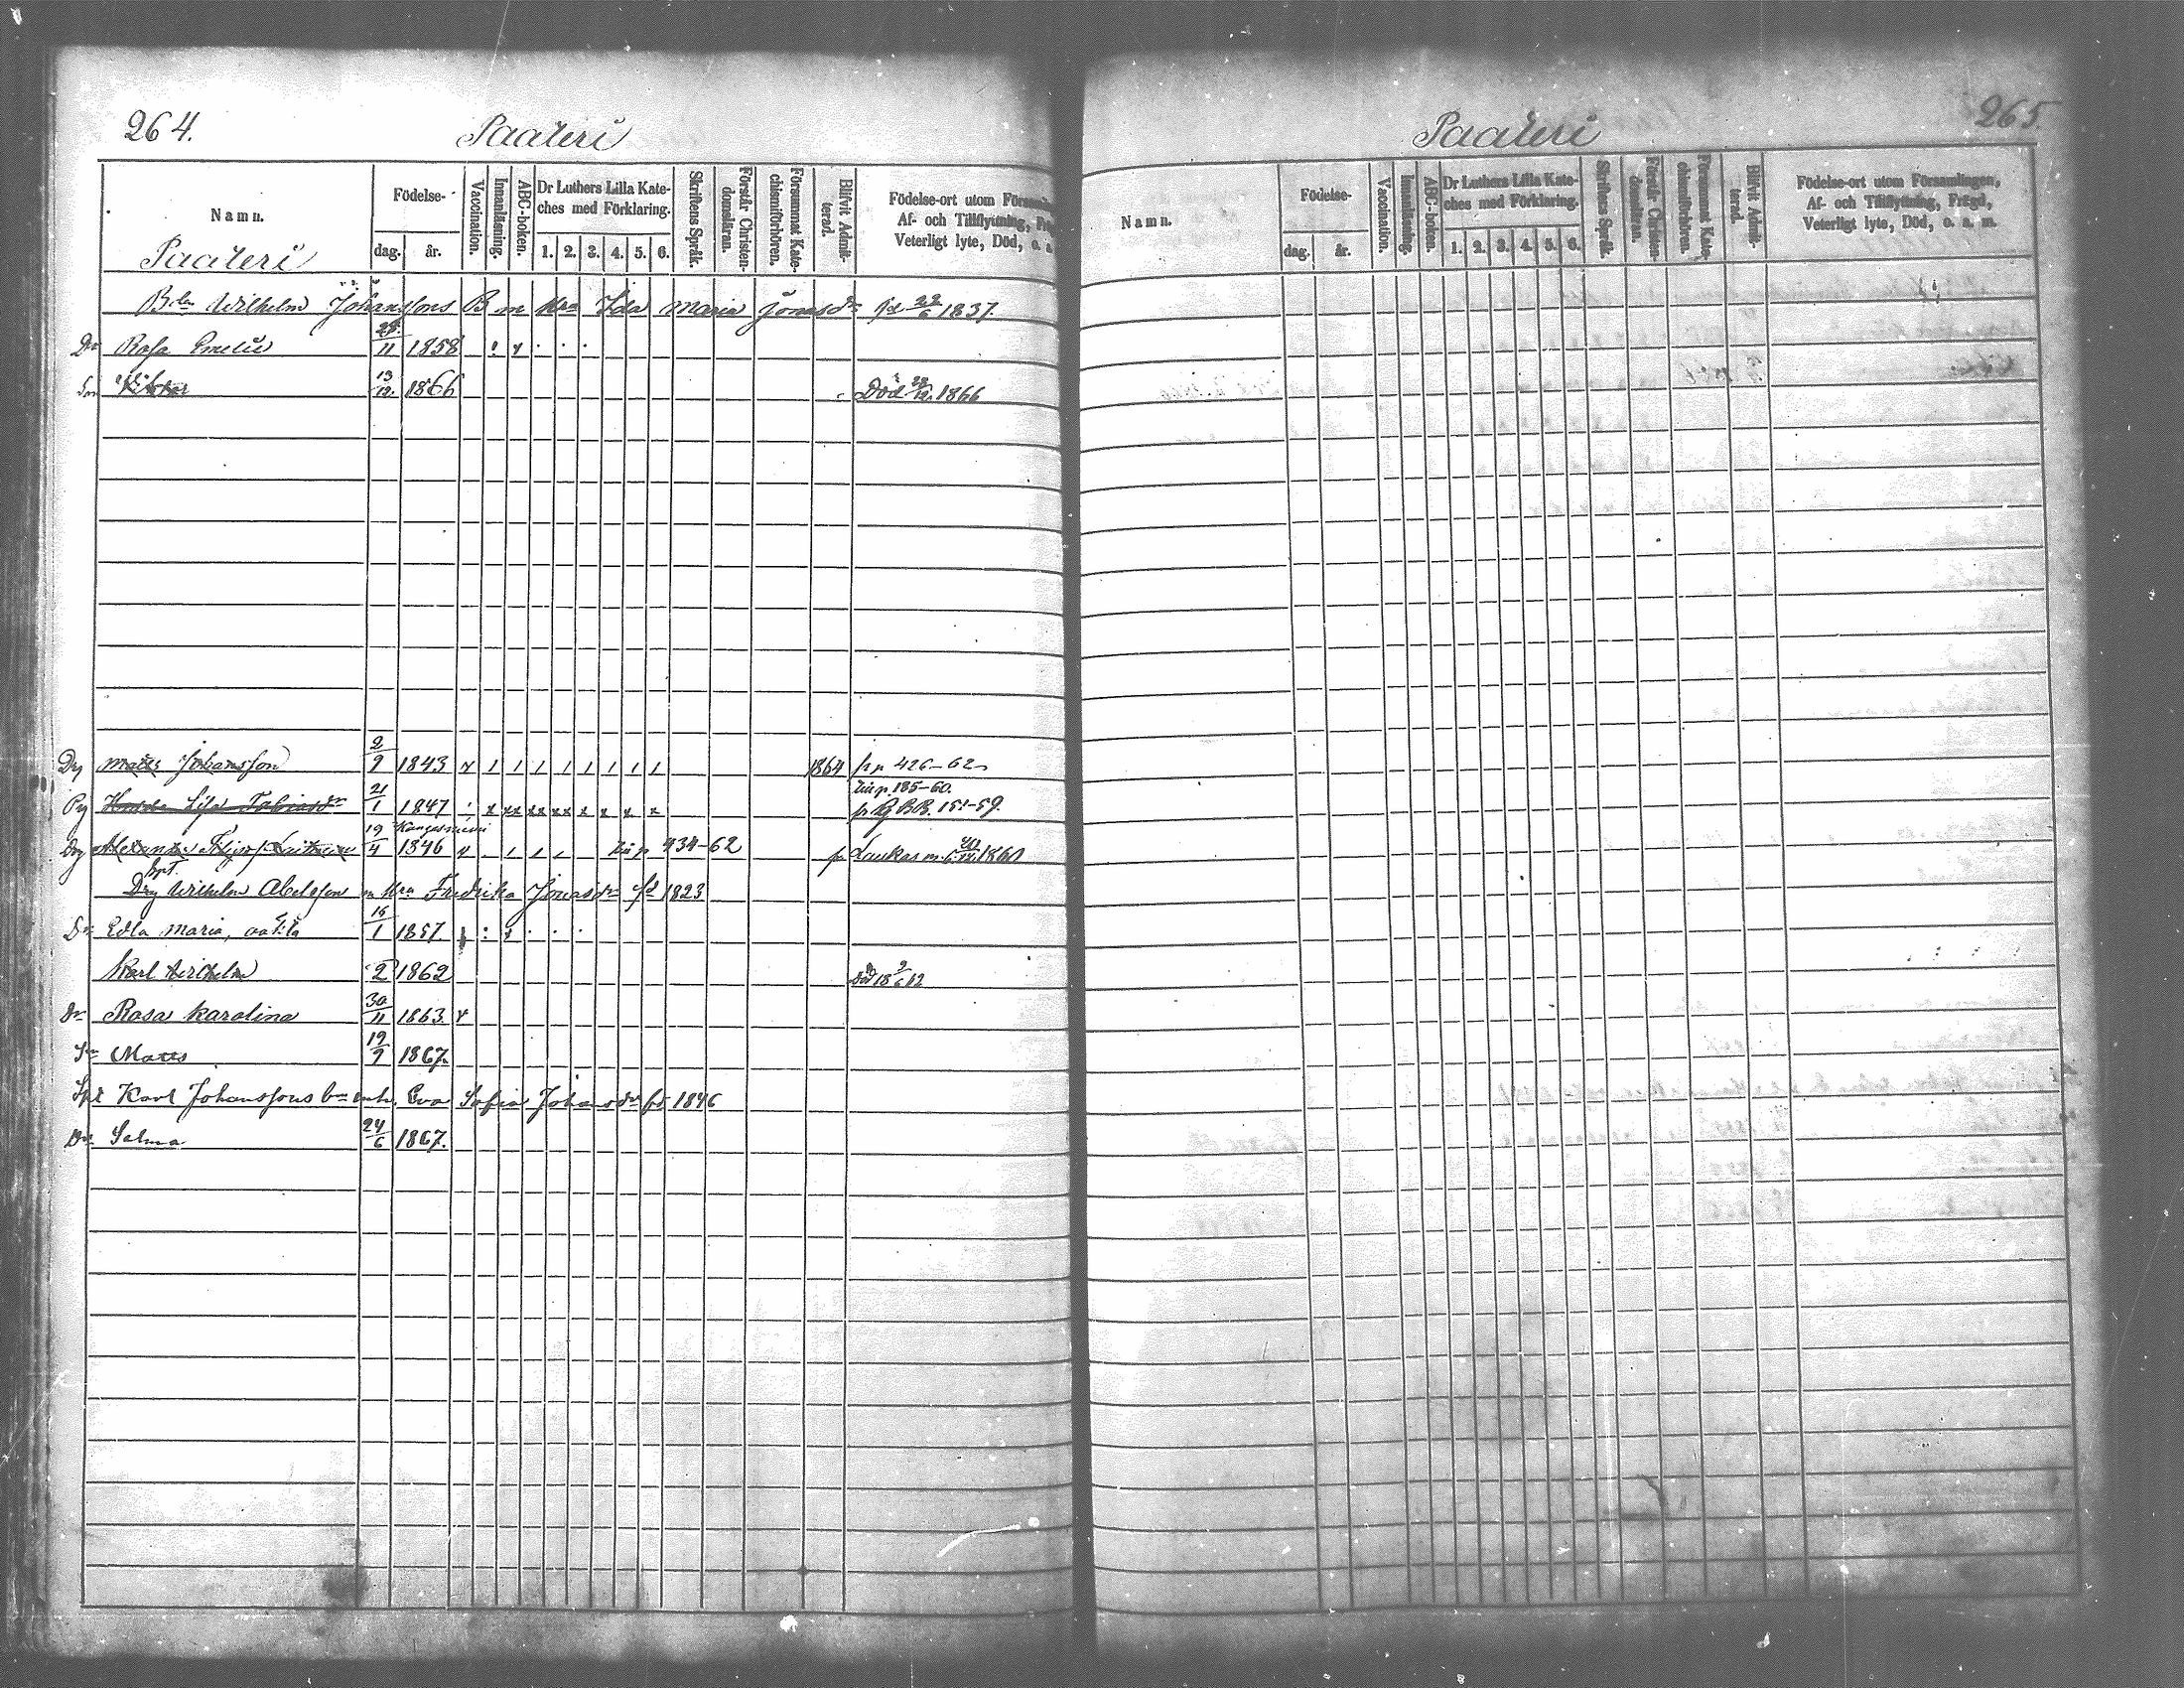 264.
Paateri
Namn.
Födelse-
dag.
år.
Vaccination.
Innanläsning.
ABC-boken.
Dr Luthers Lilla Kate-
ches med Förklaring.
1. 2. 3. 4. 5. 6.
Skriftens Språk.
Förstår Christen-
domsläran.
Försummat Kate-
chismiförhören.
Blifvit Admit-
terad.
Födelse-ort utom Församlin
Af- och Tillflyttning, Fr
Veterligt lyte, Död, o. a
Paateri
Wilhelm Johanssons B m Hra Ida Maria Jonasdr fd 22/6 1837.
Dr Rosa Emelie 28/11 1858
Son Viktor 13/12. 1866 Död 28/12. 1866
Drg Matts Johansson 2/9 1843 1864 pp 426-62
21/1 1847 p. 185-60.
B.B. 151-59.
Alexander 19/4 1846 Kangasniemi 434-62 Laukas 1860
Drg Wilhelm Abelsson m Hra Fredrika Jonasdr fd 1823
Dr Edla Maria, 16/1 1857.
Karl Wilhelm 2 1862 död 18 9/6 62
Dr Rosa Karolina 30/11 1863.
Sn Matts 19/9 1867.
Karl Johanssons enk. Eva Sofia Johansdr fd. 1846
Dr Selma 24/6 1867.
265.
Paateri
Namn.
Födelse-
dag.
år.
Vaccination.
Innanläsning.
ABC-boken.
Dr Luthers Lilla Kate-
ches med Förklaring.
1. 2. 3. 4. 5. 6.
Skriftens Språk.
Förstår Christen-
domsläran.
Försummat Kate-
chismiförhören.
Blifvit Admit-
terad.
Födelse-ort utom Församlingen,
Af- och Tillflyttning, Frägd,
Veterligt lyte, Död, o. a. m.